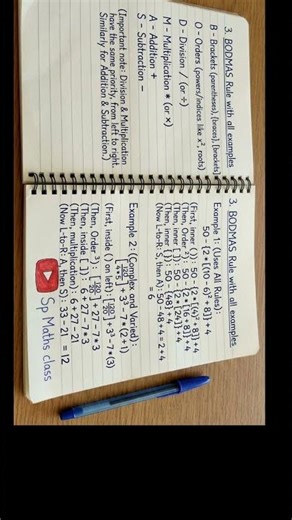 3. BODMAS Rule with all examples
B - Brackets (parentheses), {braces}, [brackets]
O - Orders (powers/indices like x², roots)
D - Division / (or ÷)
M - Multiplication * (or ×)
A - Addition +
S - Subtraction −
(Important note: Division & Multiplication
have the same priority, from left to right.
Similarly for Addition & Subtraction.)
3. BODMAS Rule with all examples
Example 1: (Uses All Rules):
50 - {2 * [(10 - 6)² + 8]} + 4
(First, inner ()): 50 - {2 * [(4)² + 8]} + 4
(Then, Order ²): 50 - {2 * [16 + 8]} + 4
(Then, inner []): 50 - {2 * [24]} + 4
(Then, inner {}): 50 - {48} + 4
(Now L-to-R: S, then A): 50 - 48 + 4 = 2 + 4
= 6
Example 2: (Complex and Varied):
+ 3³ - 7 * (2 + 1)
(First, inside () on left): + 3³ - 7 * (3)
(Then, Order ³): + 27 - 7 * 3
(Then, inside []): 6 + 27 - 7 * 3
(Then, multiplication): 6 + 27 - 21
(Now L-to-R: A, then S): 33 - 21 = 12
Sp Maths class